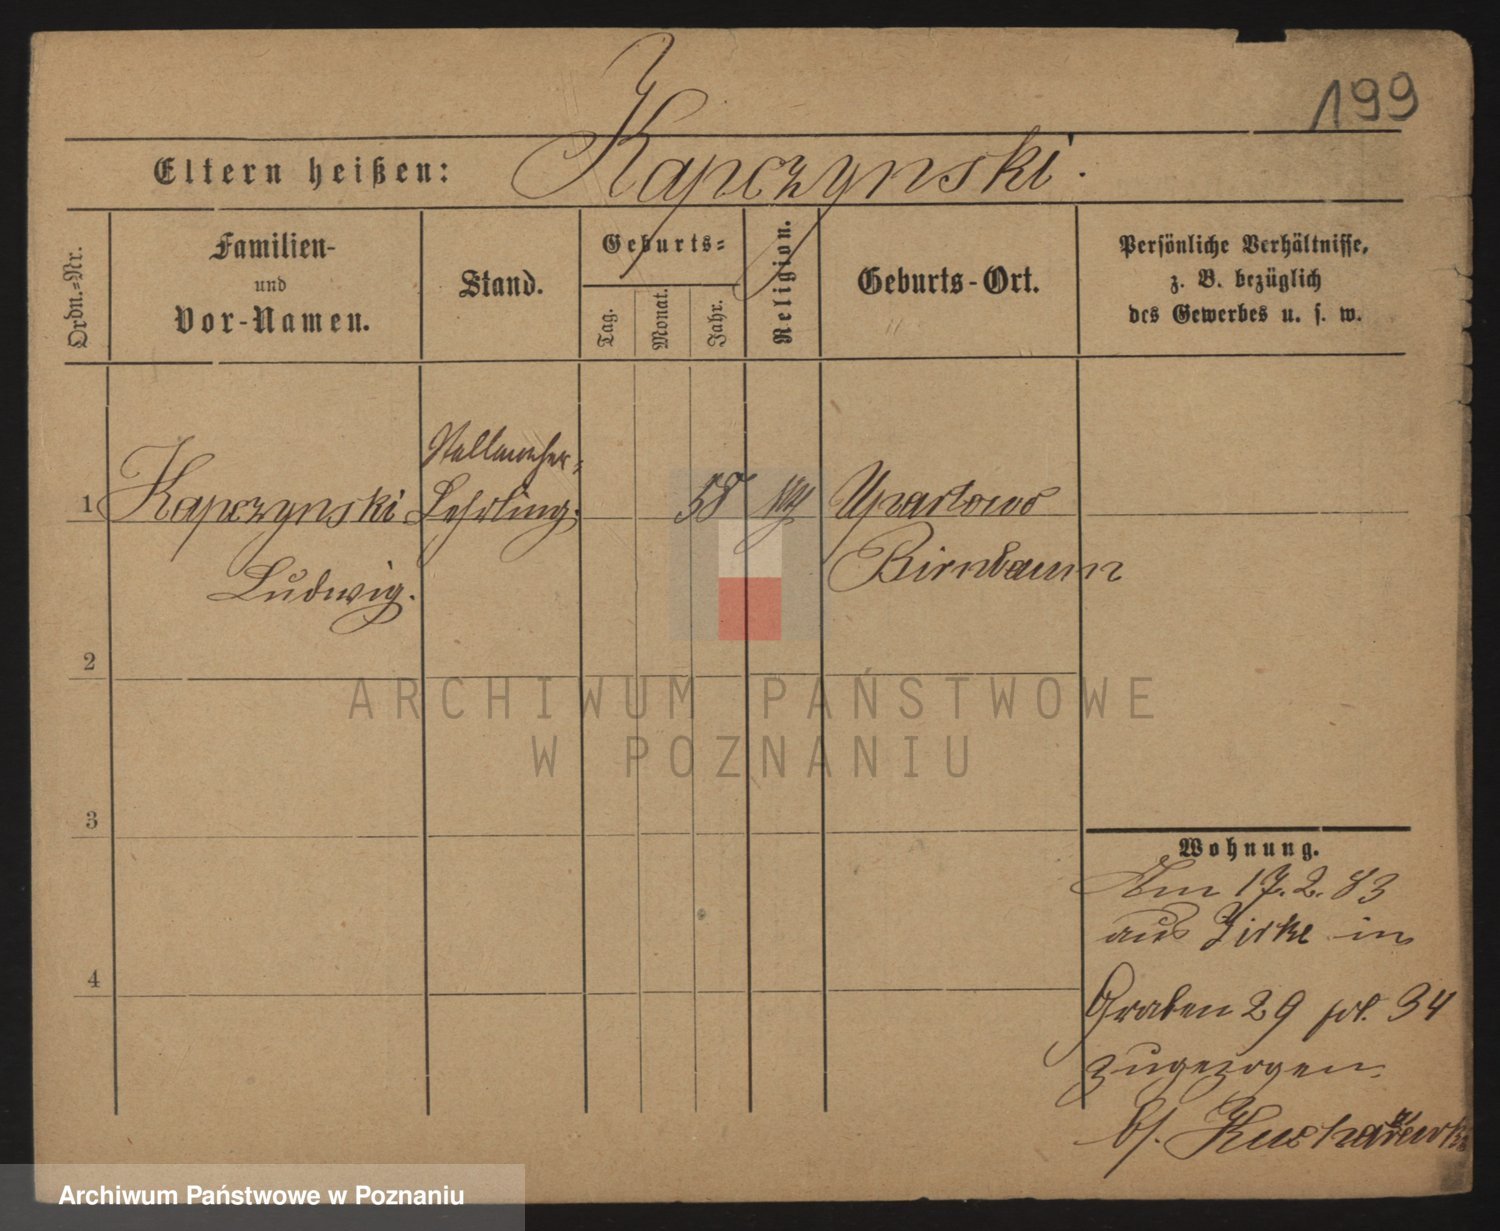 199
Eltern heißen: Kapczynski.
Ordn.=Nr.
Familien-
und
Vor-Namen.
Stand.
Geburts=
Tag.
Monat.
Jahr.
Religion.
Geburts-Ort.
Persönliche Verhältnisse,
z. B. bezüglich
des Gewerbes u. s. w.
1 Kapczynski
Ludwig.
Stellmacher=
Lehrling.
58
Upartowo
Birnbaum
2
3
4
Wohnung.
Am 17. 2. 83
aus Zirke in
Graben 29 pol. 34
zugezogen.
ARCHIWUM PAŃSTWOWE
W POZNANIU
Archiwum Państwowe w Poznaniu